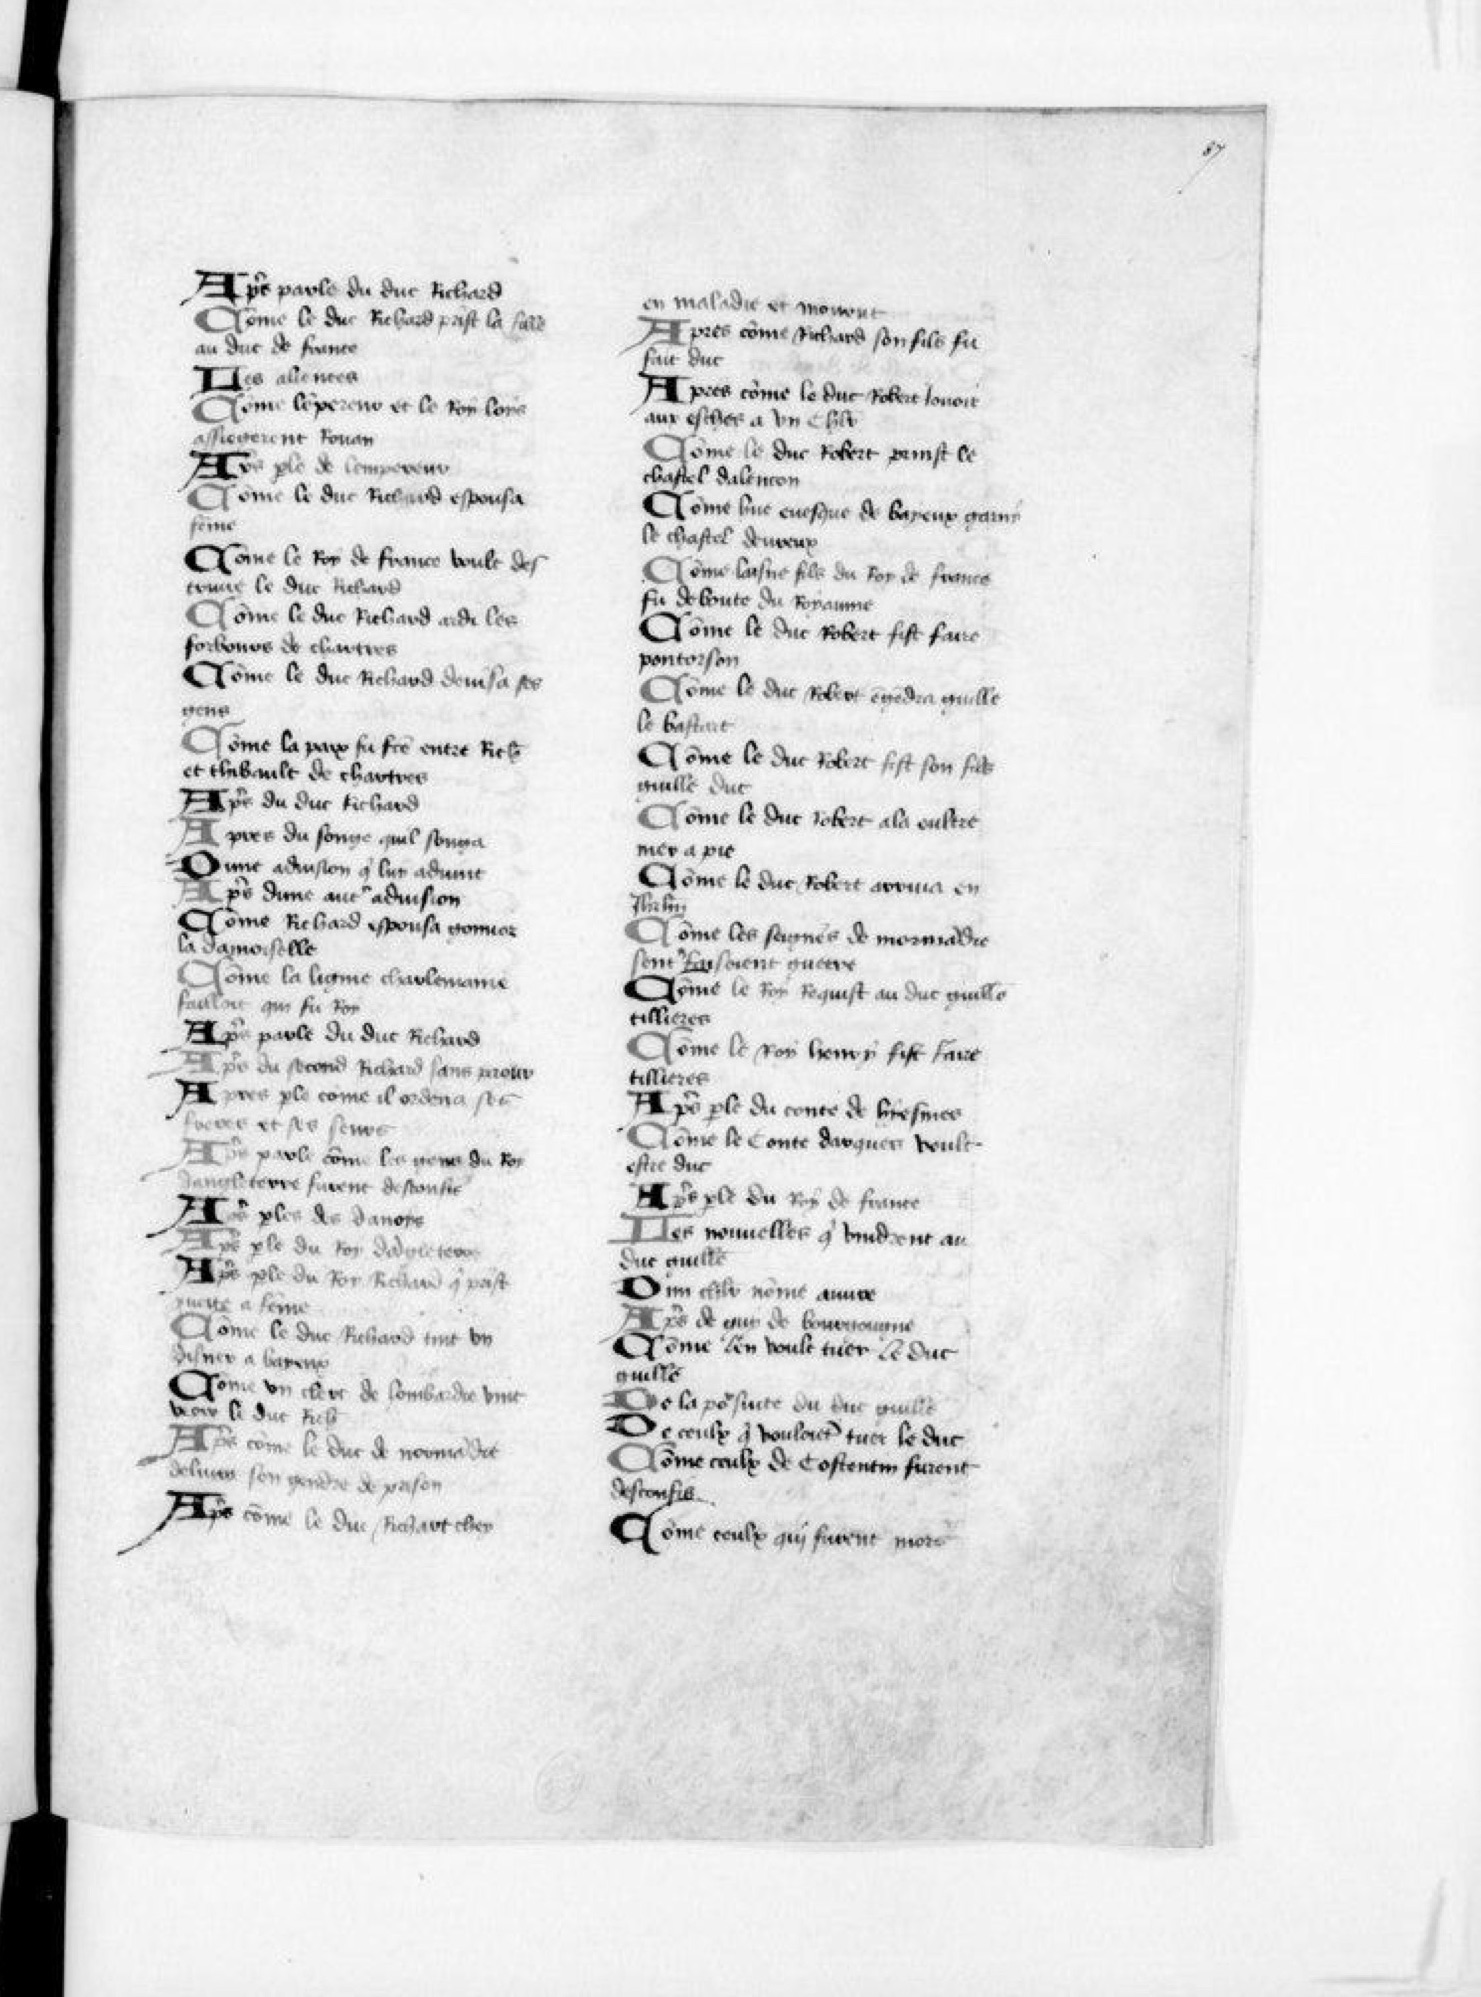 87
Aps̃ parle du duc Richard
Cõme le duc Richard prist la fille
au duc de france
Des aliences
Cõme lẽpereur et le Roy loys
assiegerent Rouan
Aps̃ ple de lempereur
Cõme le duc Richard espousa
fẽme
Cõme le Roy de france voult des
truire le duc Richard
Cõme le duc Richard ardi les
forbours de chartres
Cõme le duc Richard deuisa ses
gens
Cõme la paix fu fcẽ entre Rich̃
et thibault de chartres
Aps̃ du duc Richard
Apres du songe quil songa
Dune aduision q̃ luy aduint
Aps̃ dune autr̃ aduision
Cõme Richard espousa gonnor
la damoiselle
Cõme la ligme charlemaine
failloit qui fu Roy
Aps̃ parle du duc Richard
Aps̃ du second Richard sans prour
Apres ple cõme il ordena ses
freres et ses seurs
Aps̃ parle cõme les gens du Roy
dangleterre furent desconfis
Aps̃ ples des danois
Aps̃ ple du Roy dãgleterre
Aps̃ ple du Roy Richard q̃ prist
a fẽme
Cõme le duc Richard tint vn
disner a bayeux
Cõme vn clerc de lombardie vint
veoir le duc Rich̃
Aps̃ cõme le duc de normãdie
deliura son gendre de prison
Aps̃ cõme le duc Richart chey
en maladie et mourut
Apres cõme Richard son fils fu
fait duc
Apres cõme le duc Robert iouoit
aux esches a vn chlr̃
Cõme le duc Robert prinst le
chastel dalencon
Cõme hue euesque de bayeux garny
le chastel deureux
Cõme laisne fils du Roy de france
fu deboute du Royaume
Cõme le duc Robert fist faire
pontorson
Cõme le duc Robert ẽgẽdra guille
le bastart
Cõme le duc Robert fist son fils
guille duc
Cõme le duc Robert ala oultre
mer a pie
Cõme le duc Robert arriua en
Jhrlm̃
Cõme les seignrs̃ de normãdie
sentr̃ faisoient guerre
Cõme le Roy Requist au duc guille
tillieres
Cõme le Roy henry fist faire
tillieres
Aps̃ ple du conte de hiesmes
Cõme le Conte darques voult
estre duc
Aps̃ ple du Roy de france
Des nouuelles q̃ vindrent au
duc guille
Dun chlr̃ nõme
Aps̃ de guy de bourgougne
Cõme len voult tuer le duc
guille
De la põsuite du duc guille
De ceulx q̃ vouloiẽt tuer le duc
Cõme ceulx de Costentin furent
desconfis
Cõme ceulx qui furent mors